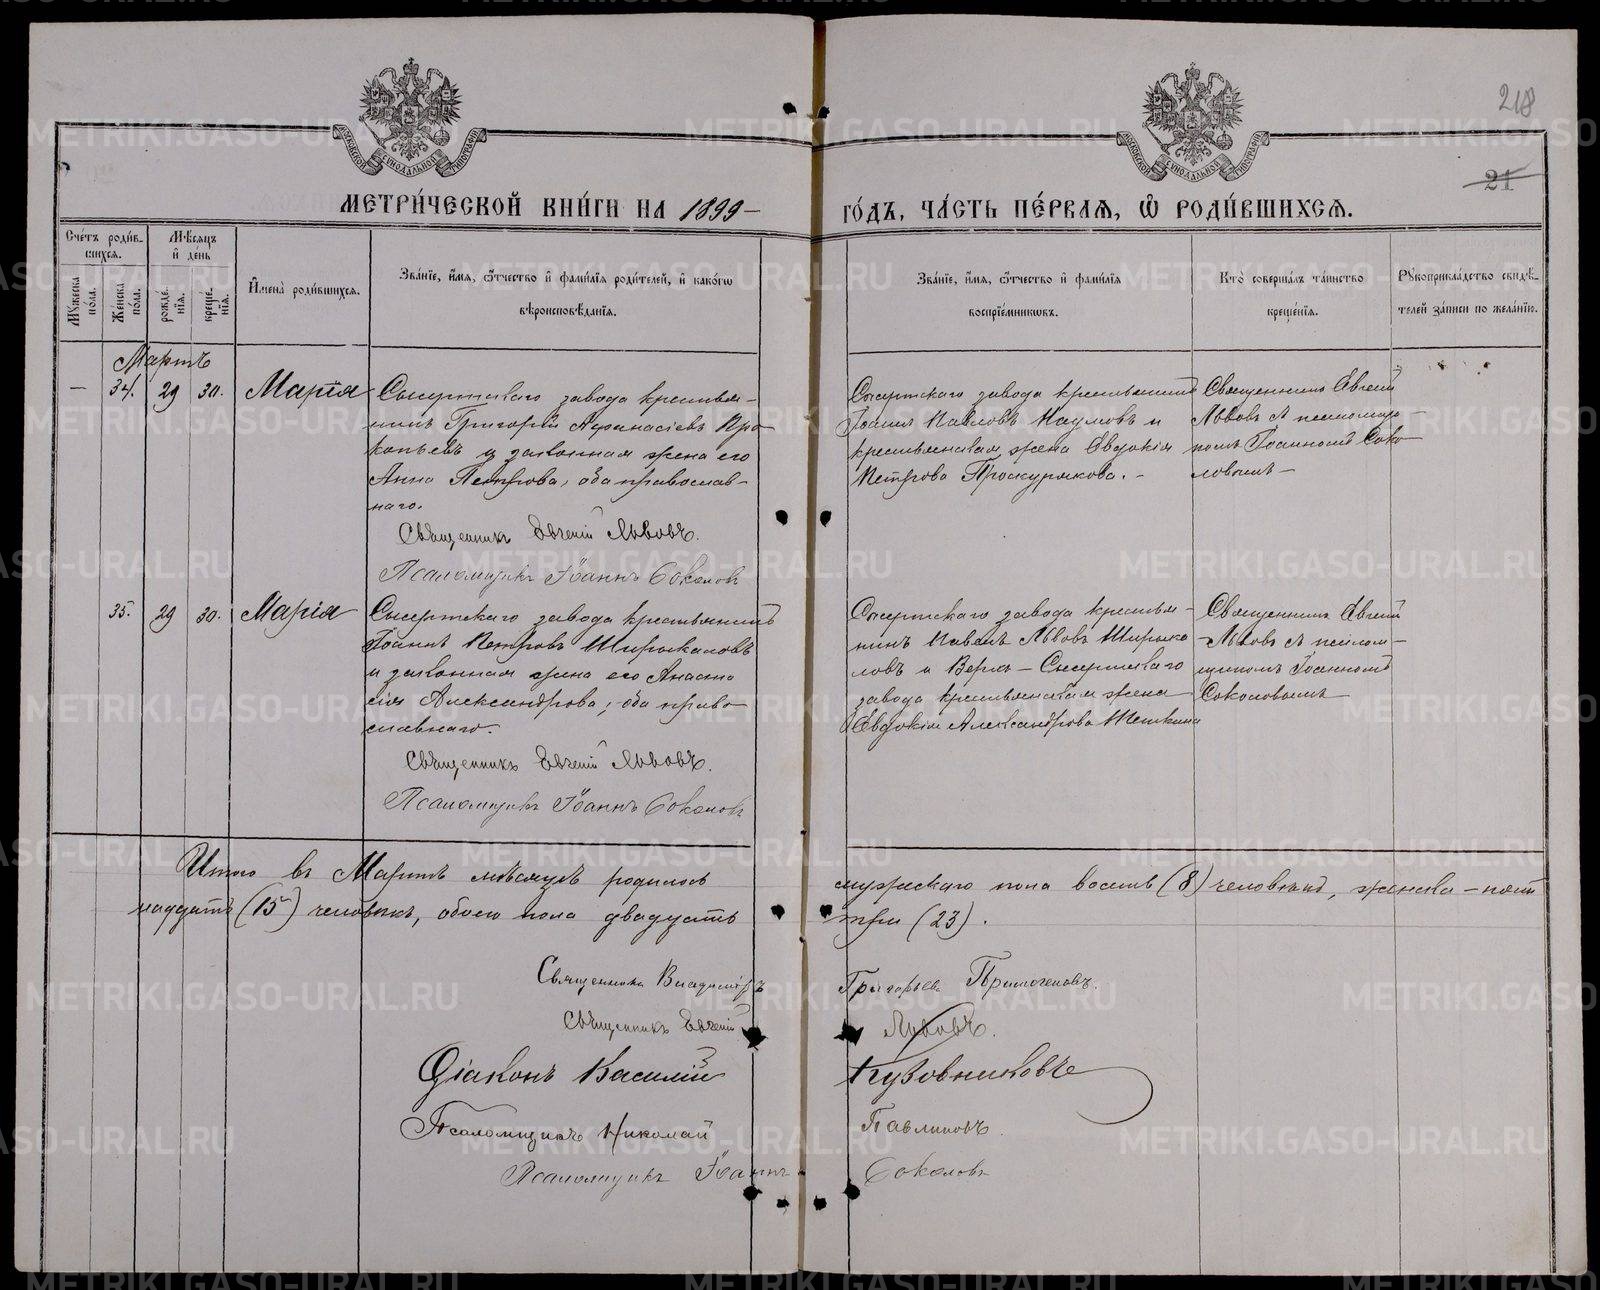 218
21
МОСКОВСКОЙ СѴНОДАЛЬНОЙ ТИПОГРАФІИ
МОСКОВСКОЙ СѴНОДАЛЬНОЙ ТИПОГРАФІИ
МЕТРИ́ЧЕСКОЙ КНИ́ГИ НА 1899 –
ГО́ДЪ, ЧА́СТЬ ПЕ́РВАѦ, Ѽ РОДИ́ВШИХСѦ.
Сче́тъ роди́в-
шихся.
Му́жеска
по́ла.
Же́нска
по́ла.
Мѣ́сяцъ
и҆ де́нь
рожде́-
нїѧ.
креще́-
нїѧ.
И҆мена̀ роди́вшихсѧ.
Зва́нїе, и҆́мѧ, ѻ҆́тчество и҆ фами́лїѧ роди́телей, и҆ како́гѡ
вѣроисповѣ́данїѧ.
Зва́нїе, и҆́мѧ, ѻ҆́тчество и҆ фами́лїѧ
воспрїе́мниковъ.
Кто̀ соверша́лъ та́инство
креще́нїѧ.
Рꙋкоприкла́дство свидѣ́-
телей за́писи по жела́нїю.
Мартъ
– 34. 29 30. Марія
Сысертскаго завода крестья-
нинъ Григорій Афанасіевъ Про-
копьевъ и законная жена его
Анна Петрова, оба православ-
наго.
Священникъ Евгеній Львовъ.
Псаломщикъ Іоаннъ Соколовъ
Сысертскаго завода крестьянинъ
Іоаннъ Павловъ Наумовъ и
крестьянская жена Евдокія
Петрова Проскурякова. –
Священникъ Евгеній
Львовъ съ псаломщи-
комъ Іоанномъ Соко-
ловымъ –
35. 29 30. Марія
Сысертскаго завода крестьянинъ
Іоаннъ Петровъ Ширыкаловъ
и законная жена его Анаста
сія Александрова; оба право-
славнаго.
Священникъ Евгеній Львовъ.
Псаломщикъ Іоаннъ Соколовъ
Сысертскаго завода крестья-
нинъ Павелъ Львовъ Ширыка
ловъ и Верх-Сысертскаго
завода крестьянская жена
Евдокія Александрова
Священникъ Евгеній
Львовъ съ псалом-
щикомъ Іоанномъ
Соколовымъ
Итого въ Мартѣ мѣсяцѣ родилось мужескаго пола восемь (8) человѣкъ, женска – пят
надцать (15) человѣкъ, обоего пола двадцать три (23).
Священникъ Владиміръ Григорьевъ
Священникъ Евгеній Львовъ.
Діаконъ Василій Кузовниковъ
Псаломщикъ Николай Павлиновъ
Псаломщикъ Іоаннъ Соколовъ
METRIKI.GASO-URAL.RU